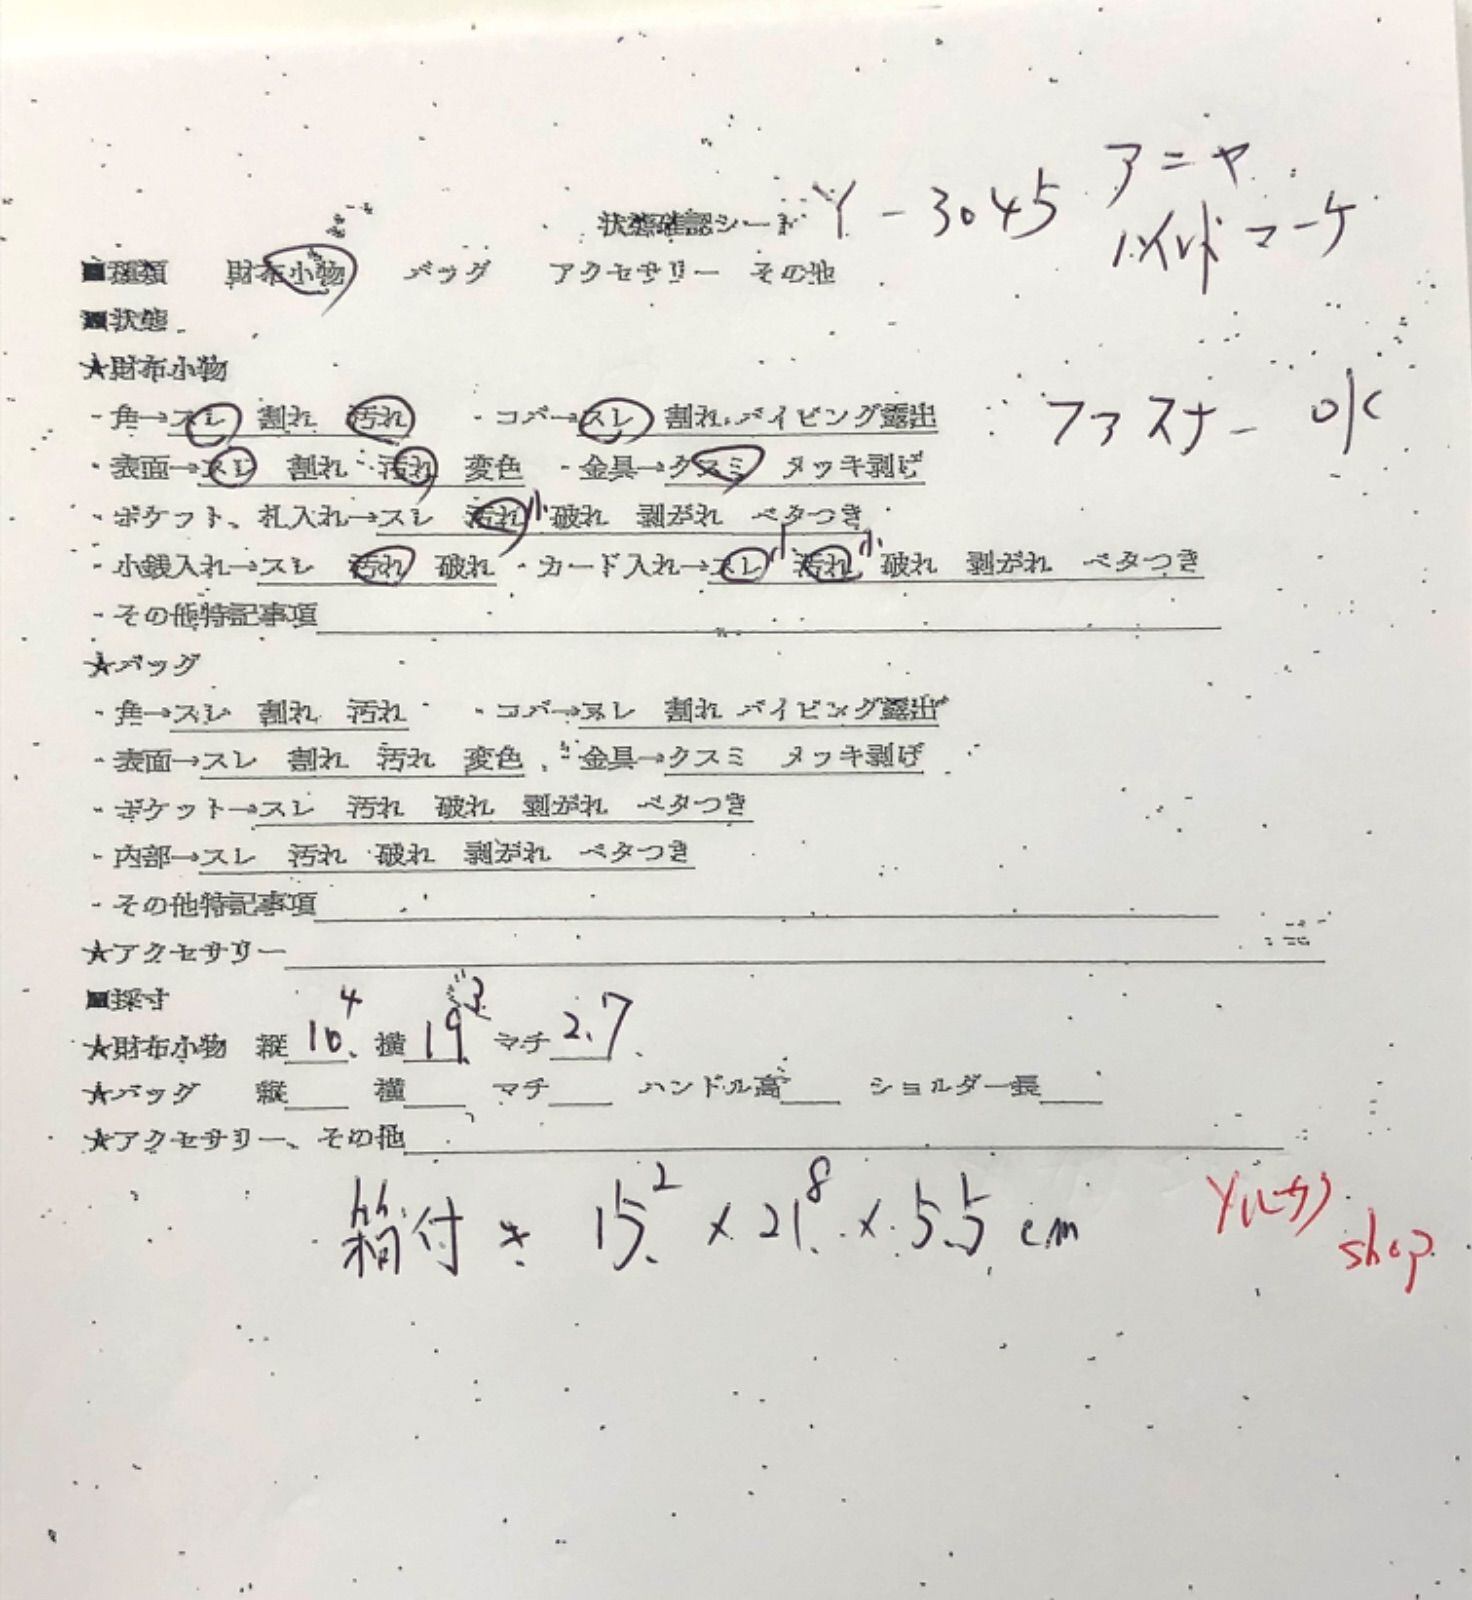 アニヤ
状態確認シート Y-3045 ハイルドマーケ
■種類 財布小物 バッグ アクセサリー その他
■状態
★財布小物
・角→スレ 割れ 汚れ ・コバ→スレ 割れ パイピング露出 ファスナー OK
・表面→スレ 割れ 汚れ 変色 ・金具→クスミ メッキ剥げ
・ポケット、札入れ→スレ 汚れ 小 破れ 剥がれ ベタつき
・小銭入れ→スレ 汚れ 破れ ・カード入れ→スレ 小 汚れ 小 破れ 剥がれ ベタつき
・その他特記事項
★バッグ
・角→スレ 割れ 汚れ ・コバ→スレ 割れ パイピング露出
・表面→スレ 割れ 汚れ 変色 ・金具→クスミ メッキ剥げ
・ポケット→スレ 汚れ 破れ 剥がれ ベタつき
・内部→スレ 汚れ 破れ 剥がれ ベタつき
・その他特記事項
★アクセサリー
■採寸
★財布小物 縦 10.4 横 19.3 マチ 2.7
★バッグ 縦 横 マチ ハンドル高 ショルダー長
★アクセサリー、その他
箱付 * 15.2 × 21.8 × 5.5 cm
shop